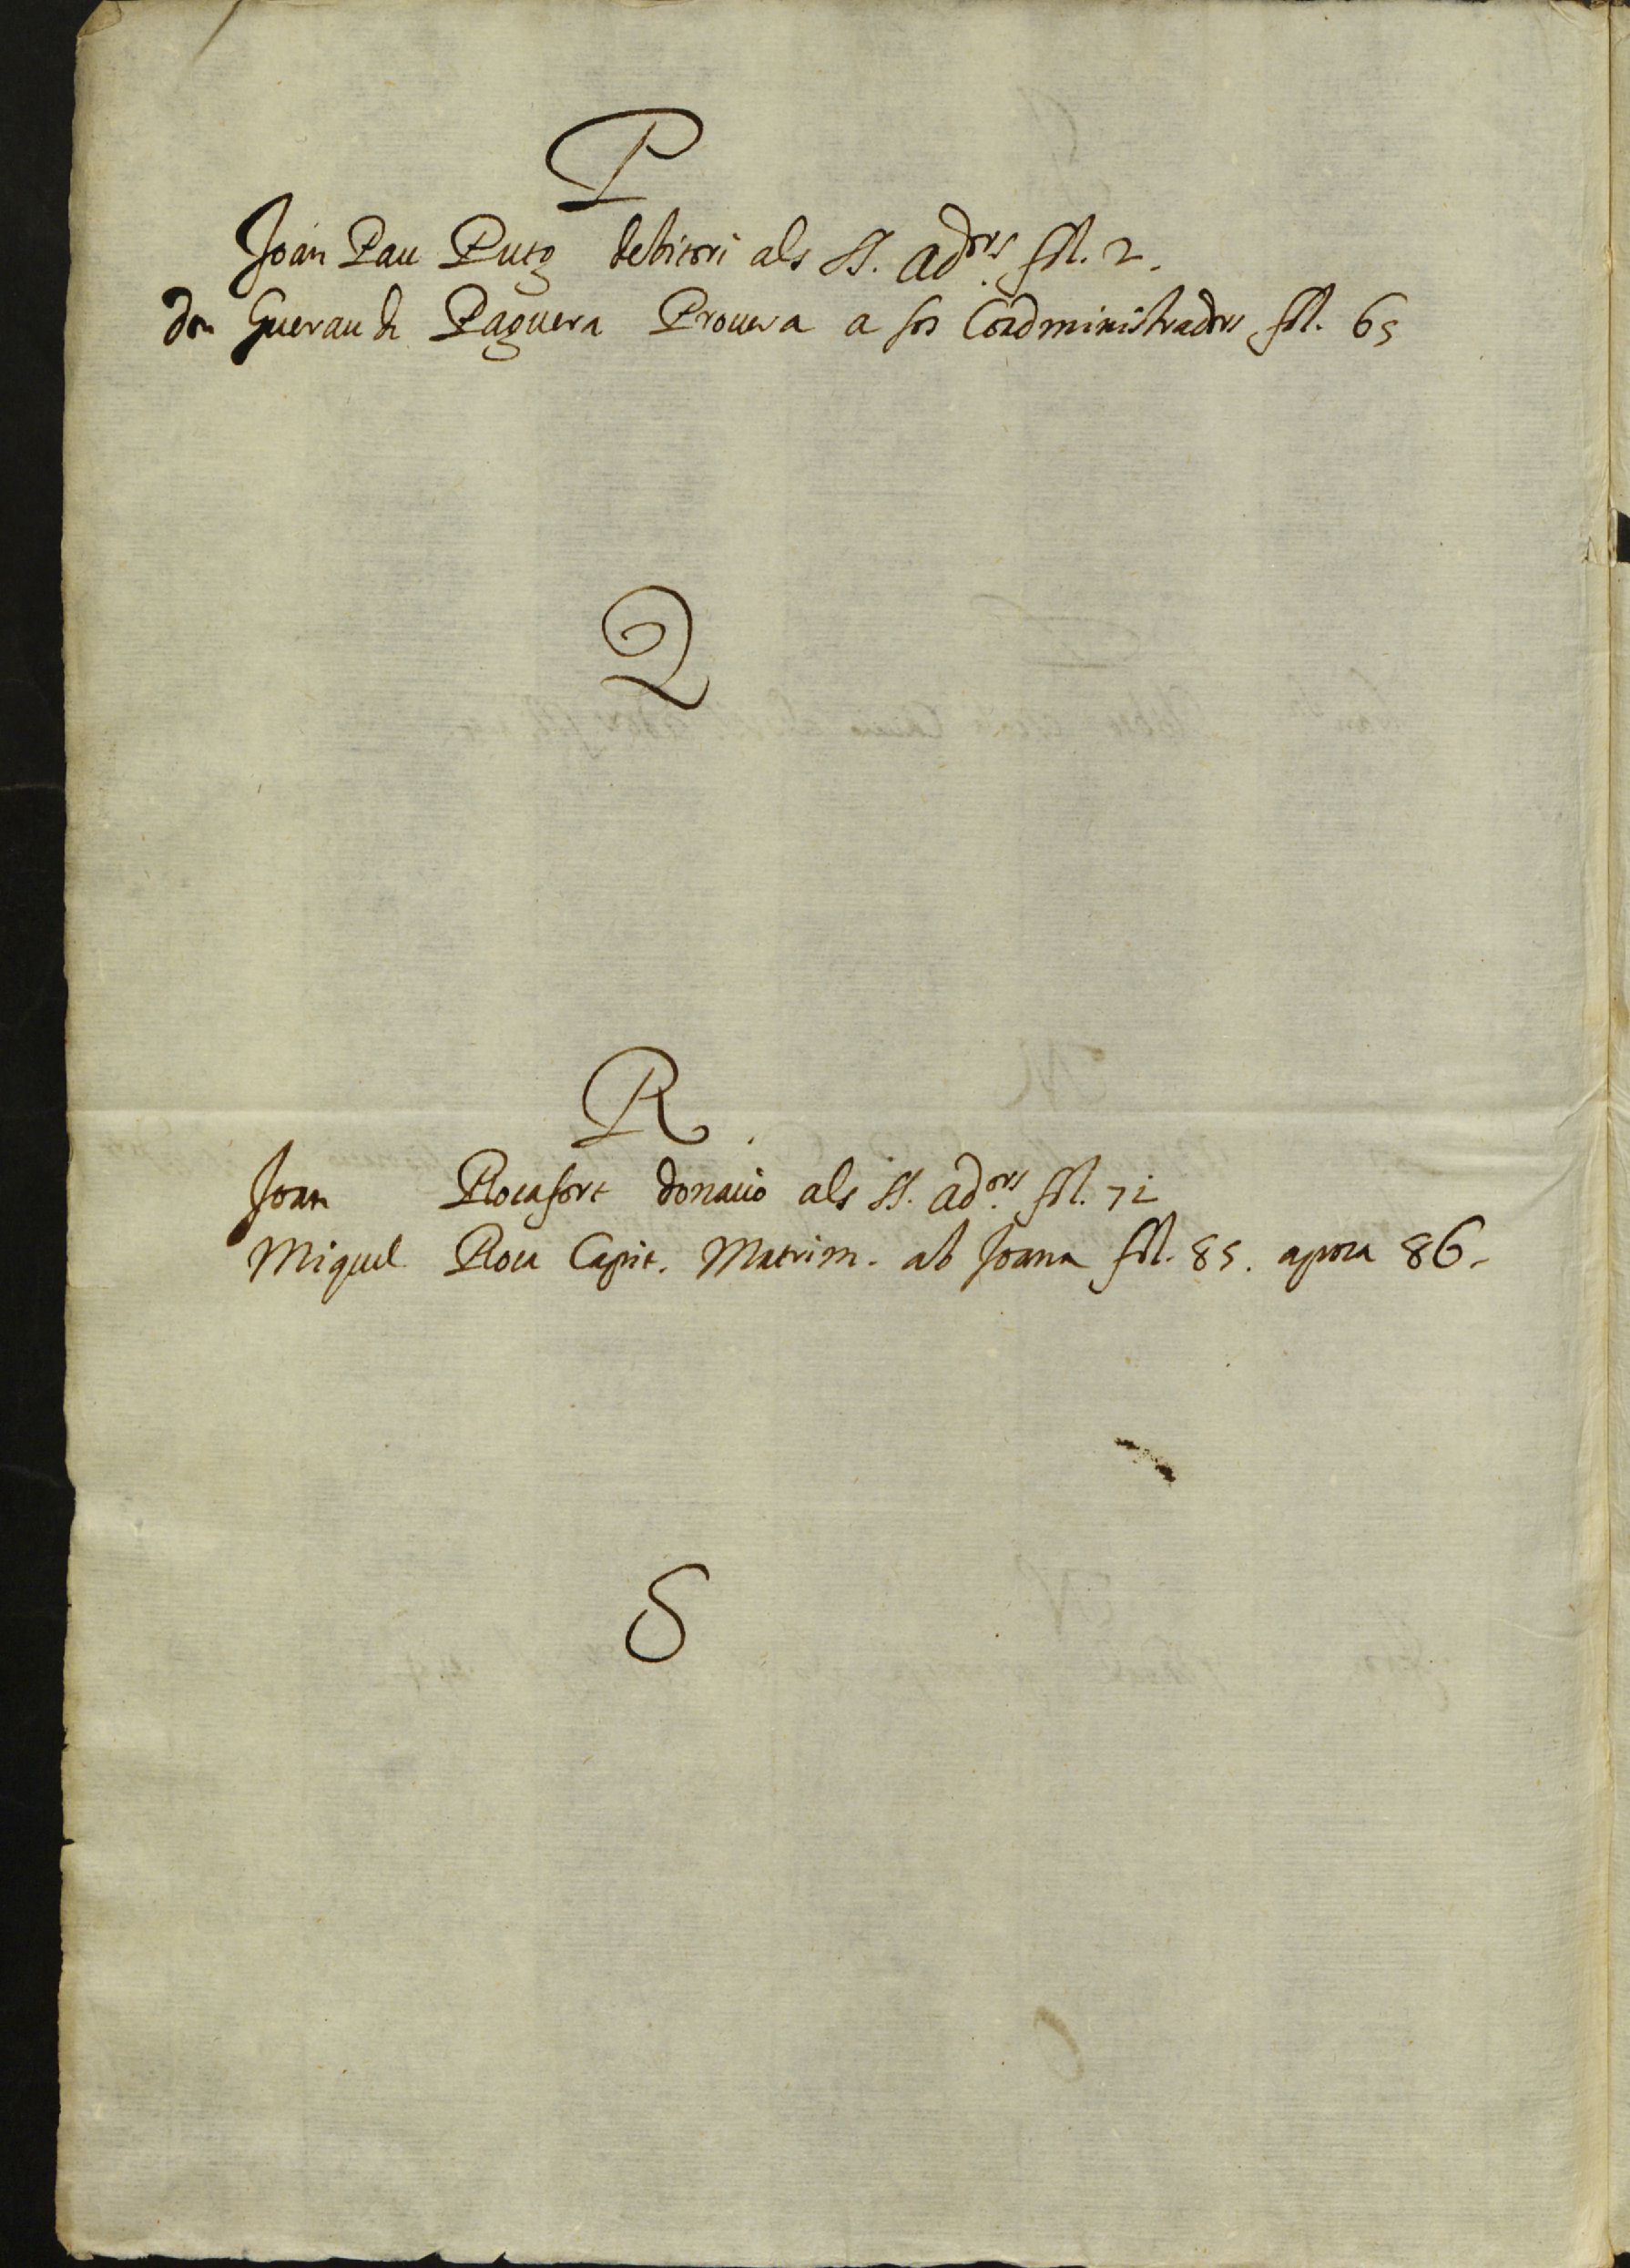 P
Joan Pau Puig debitori als SS. Ad.ors fol. 2.
don Guerau de Paguera Procura a sos Coadministradors fol. 65
Q
R
Joan Rocafort donacio als SS. ad.ors fol. 71
Miquel Roca Capit. Matrim. ab Joana fol. 85. apoca 86.
S